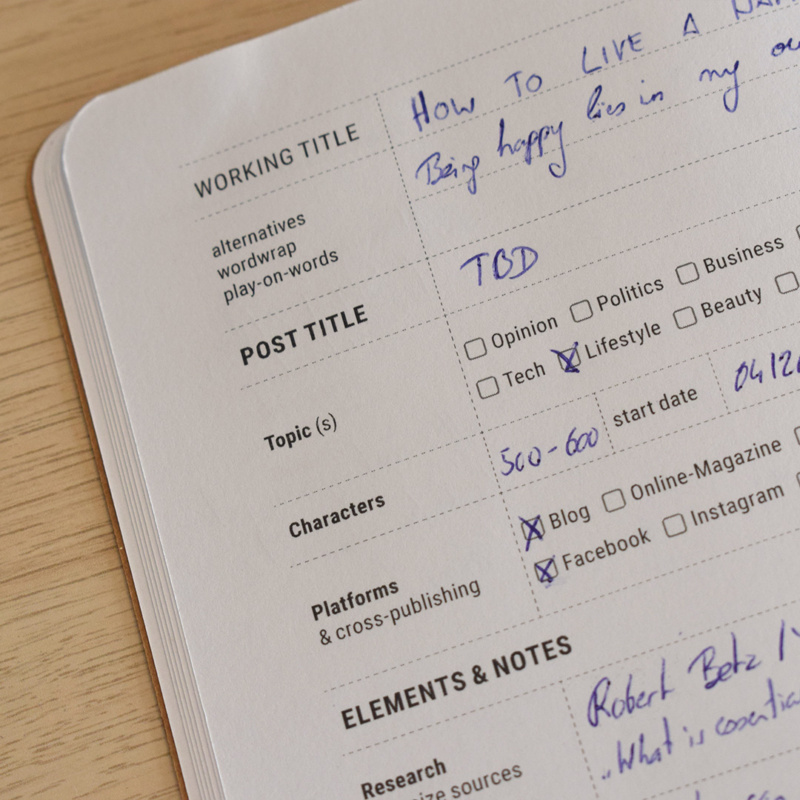 WORKING TITLE
HOW TO LIVE A
Being happy lies in my
alternatives
wordwrap
play-on-words
POST TITLE
TBD
Topic (s)
Opinion Politics Business
Tech Lifestyle Beauty
Characters
500-600 start date 04/2
Platforms
& cross-publishing
Blog Online-Magazine
Facebook Instagram
ELEMENTS & NOTES
Research
sources
Robert Betz
"What is